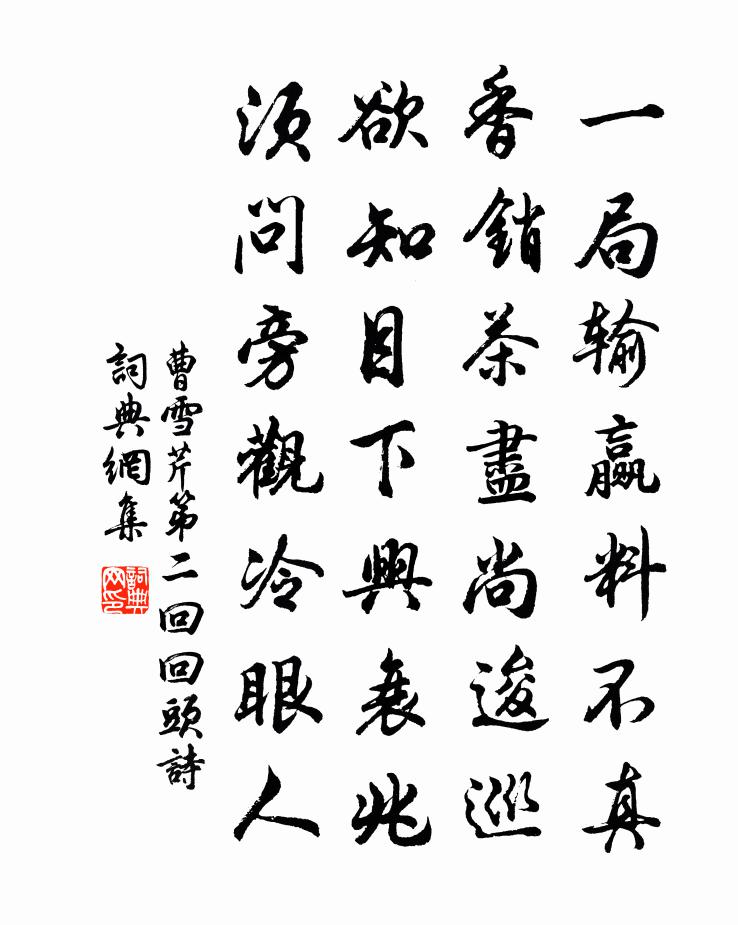 一局输贏料不真
香銷茶盡尚逡巡
欲知目下興衰兆
須問旁觀冷眼人
曹雪芹第二回回頭詩
詞典網集
詞典网印